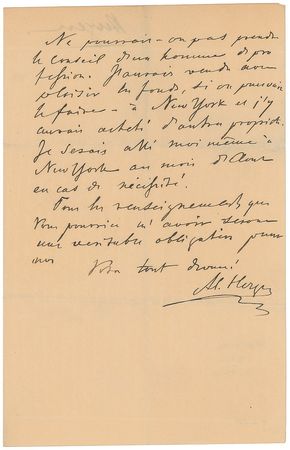 Ne pourrait-on pas prendre
le conseil d'un homme de pro
fession. J'aurais vendu avec
plaisir les fonds, si on pouvait
le faire - à New York et j'y
aurais acheté d'autres propriét.
Je serais allé moi même à
New York au mois d'Aout
en cas de nécessité.
Tous les renseignements que
Vous pourriez m'avoir seront
une veritable obligation pour
moi
Votre tout devoué
Al. Herzen